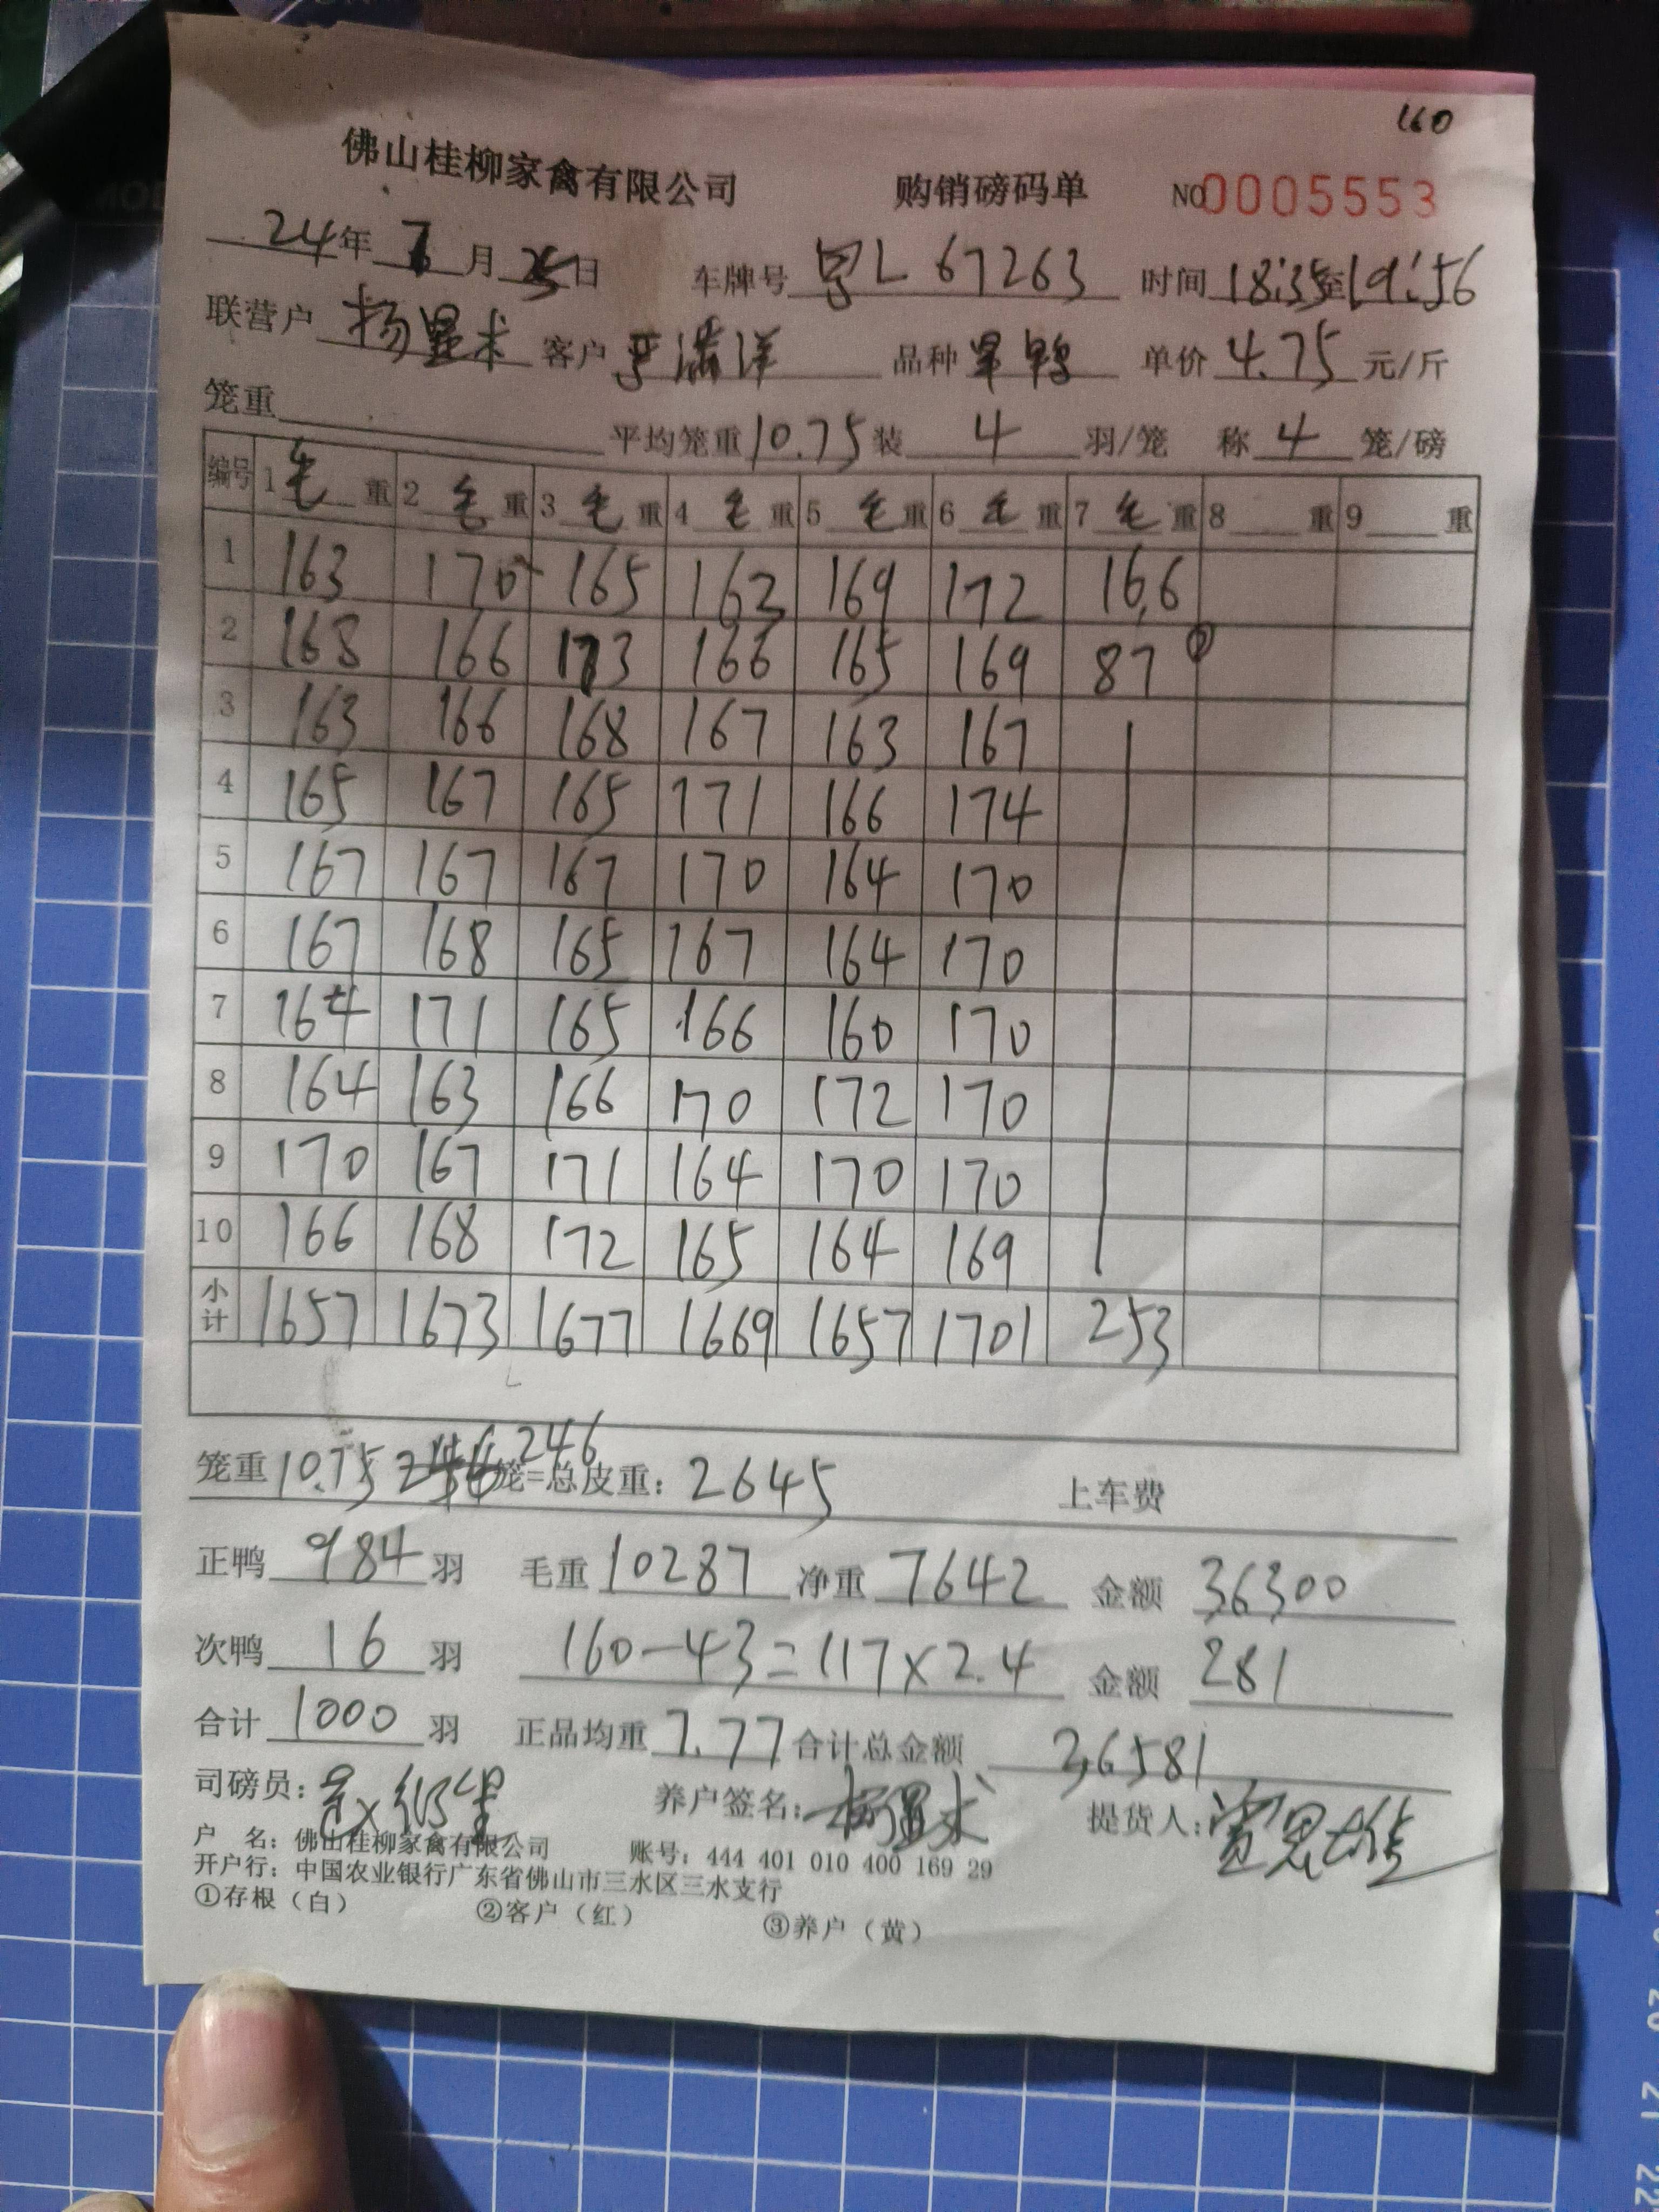 160
佛山桂柳家禽有限公司 购销磅码单 NO0005553
24年 7月 25日 车牌号 粤L 67263 时间 18:35至19:56
联营户 杨显术 客户 满洋 品种 旱鸭 单价 4.75 元/斤
笼重 平均笼重 10.75 装 4 羽/笼 称 4 笼/磅
编号 1毛重 2毛重 3毛重 4毛重 5毛重 6毛重 7毛重 8重 9重
1 163 170 165 162 169 172 166
2 168 166 173 166 165 169 87 ②
3 163 166 168 167 163 167
4 165 167 165 171 166 174
5 167 167 167 170 164 170
6 167 168 165 167 164 170
7 164 171 165 166 160 170
8 164 163 166 170 172 170
9 170 167 171 164 170 170
10 166 168 172 165 164 169
小计 1657 1673 1677 1669 1657 1701 253
笼重 10.75 246 笼=总皮重: 2645 上车费
正鸭 984 羽 毛重 10287 净重 7642 金额 36300
次鸭 16 羽 160-43=117×2.4 金额 281
合计 1000 羽 正品均重 7.77 合计总金额 36581
司磅员: 养户签名: 杨显术 提货人:
户 名: 佛山桂柳家禽有限公司 账号: 444 401 010 400 169 29
开户行: 中国农业银行广东省佛山市三水区三水支行
①存根（白） ②客户（红） ③养户（黄）